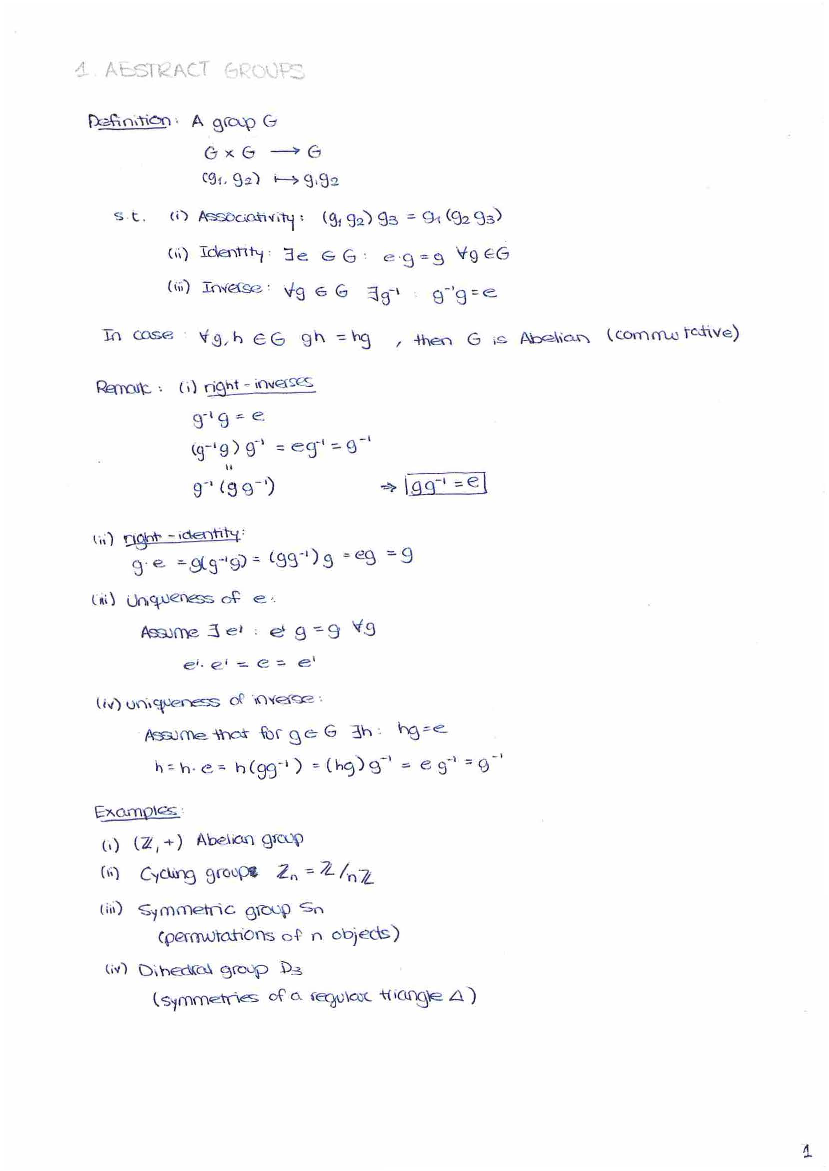 1. ABSTRACT GROUPS
Definition: A group G
G × G ⟶ G
(g₁, g₂) ⟼ g₁g₂
s.t. (i) Associativity: (g₁ g₂) g₃ = g₁ (g₂ g₃)
(ii) Identity: ∃e ∈ G : e·g = g ∀g ∈ G
(iii) Inverse: ∀g ∈ G ∃g⁻¹ : g⁻¹g = e
In case : ∀g, h ∈ G gh = hg , then G is Abelian (commutative)
Remark: (i) right-inverses
g⁻¹g = e
(g⁻¹g) g⁻¹ = eg⁻¹ = g⁻¹
=
g⁻¹ (g g⁻¹) ⇒ gg⁻¹ = e
(ii) right-identity:
g·e = g(g⁻¹g) = (gg⁻¹) g = eg = g
(iii) Uniqueness of e:
Assume ∃ e' : e' g = g ∀g
e'· e' = e = e'
(iv) uniqueness of inverse:
Assume that for g ∈ G ∃h: hg = e
h = h·e = h(gg⁻¹) = (hg) g⁻¹ = e g⁻¹ = g⁻¹
Examples:
(i) (ℤ, +) Abelian group
(ii) Cycling groups ℤₙ = ℤ/nℤ
(iii) Symmetric group Sₙ
(permutations of n objects)
(iv) Dihedral group D₃
(symmetries of a regular triangle Δ)
1